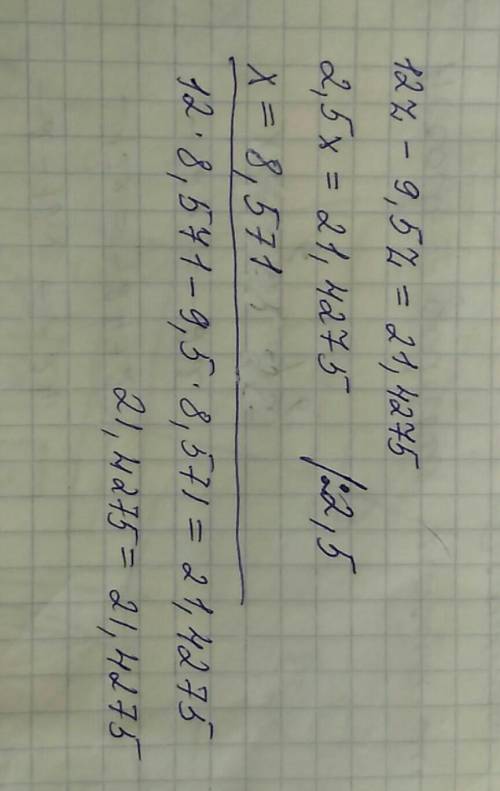 12z - 9,5z = 21,4275
2,5x = 21,4275 /:2,5
x = 8,571
12·8,571-9,5·8,571 = 21,4275
21,4275 = 21,4275